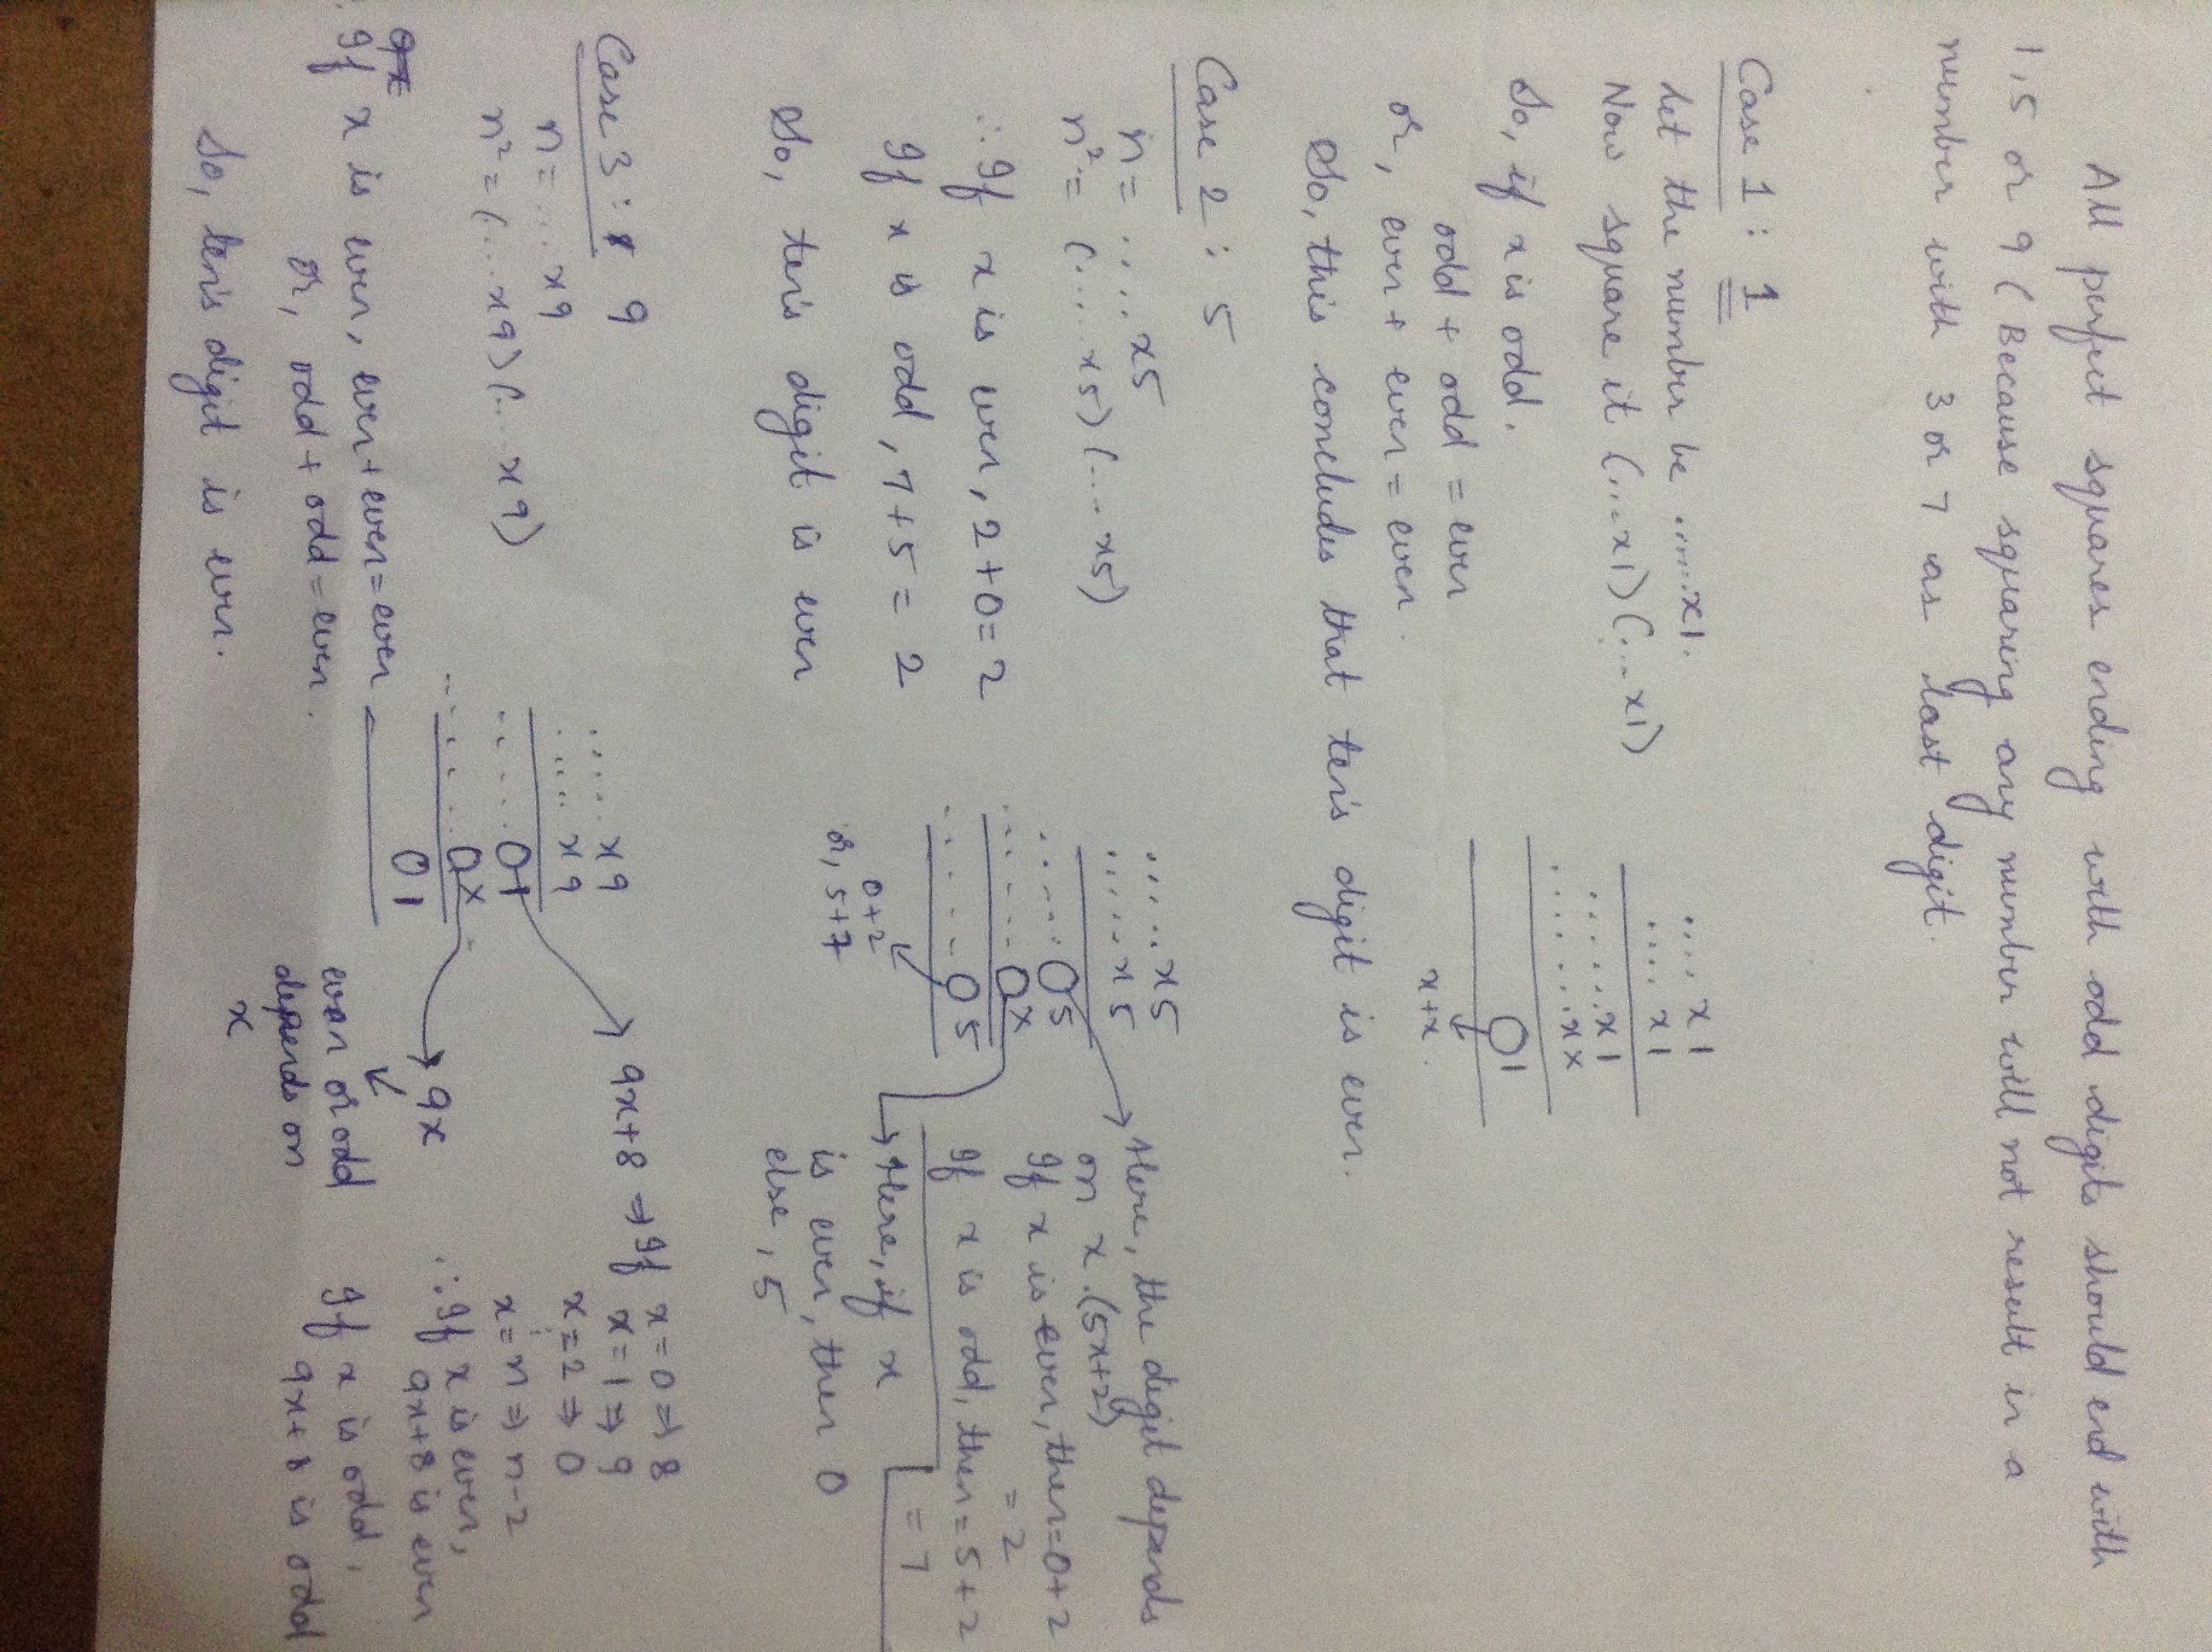 All perfect squares ending with odd digits should end with
1, 5 or 9 (Because squaring any number will not result in a
number with 3 or 7 as last digit.
Case 1 : 1
Let the number be ......x1.
Now square it (...x1) (...x1)
So, if x is odd.
odd + odd = even
or, even + even = even.
So, this concludes that ten's digit is even.
.... x1
.... x1
......x1
......xx
01
x+x.
Case 2 : 5
n = .... x5
n² = (.... x5) (... x5)
∴ If x is even, 2+0=2
If x is odd, 7+5 = 2
So, ten's digit is even
..... x5
.... x5
.....05
.....0x
.....05
0+2
or, 5+7
Here, the digit depends
on x.(5x+2)
If x is even, then=0+2
= 2
If x is odd, then = 5+2
= 7
Here, if x
is even, then 0
else, 5
Case 3 : 9
n = ... x9
n² = (... x9) (... x9)
If x is even, even+even=even
or, odd + odd = even.
So, ten's digit is even.
..... x9
.... x9
....01
....0x
01
9x+8 ⇒ If x=0⇒8
x=1⇒9
x=2⇒0
x=n⇒n-2
∴ If x is even,
9x+8 is even
If x is odd,
9x+8 is odd
9x
even or odd
depends on
x